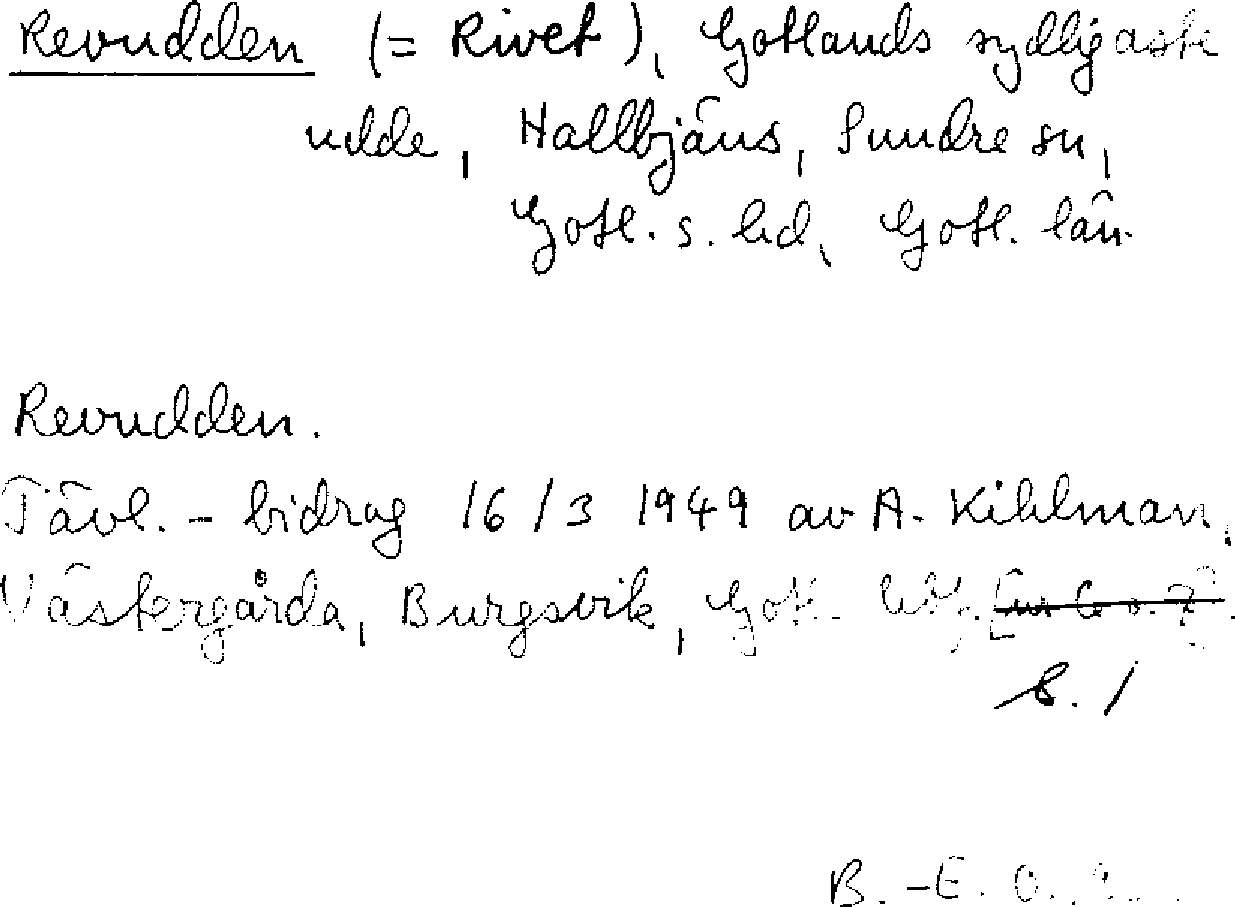 Revudden (= Rivet), Gotlands sydligaste
udde, Hallbjäns, Sundre sn,
Gotl. s. hd, Gotl. län.
Revudden.
Tävl.-bidrag 16/3 1949 av A. Kihlman,
Västergårda, Burgsvik, Gotl.
s. 1
B.-E. O.